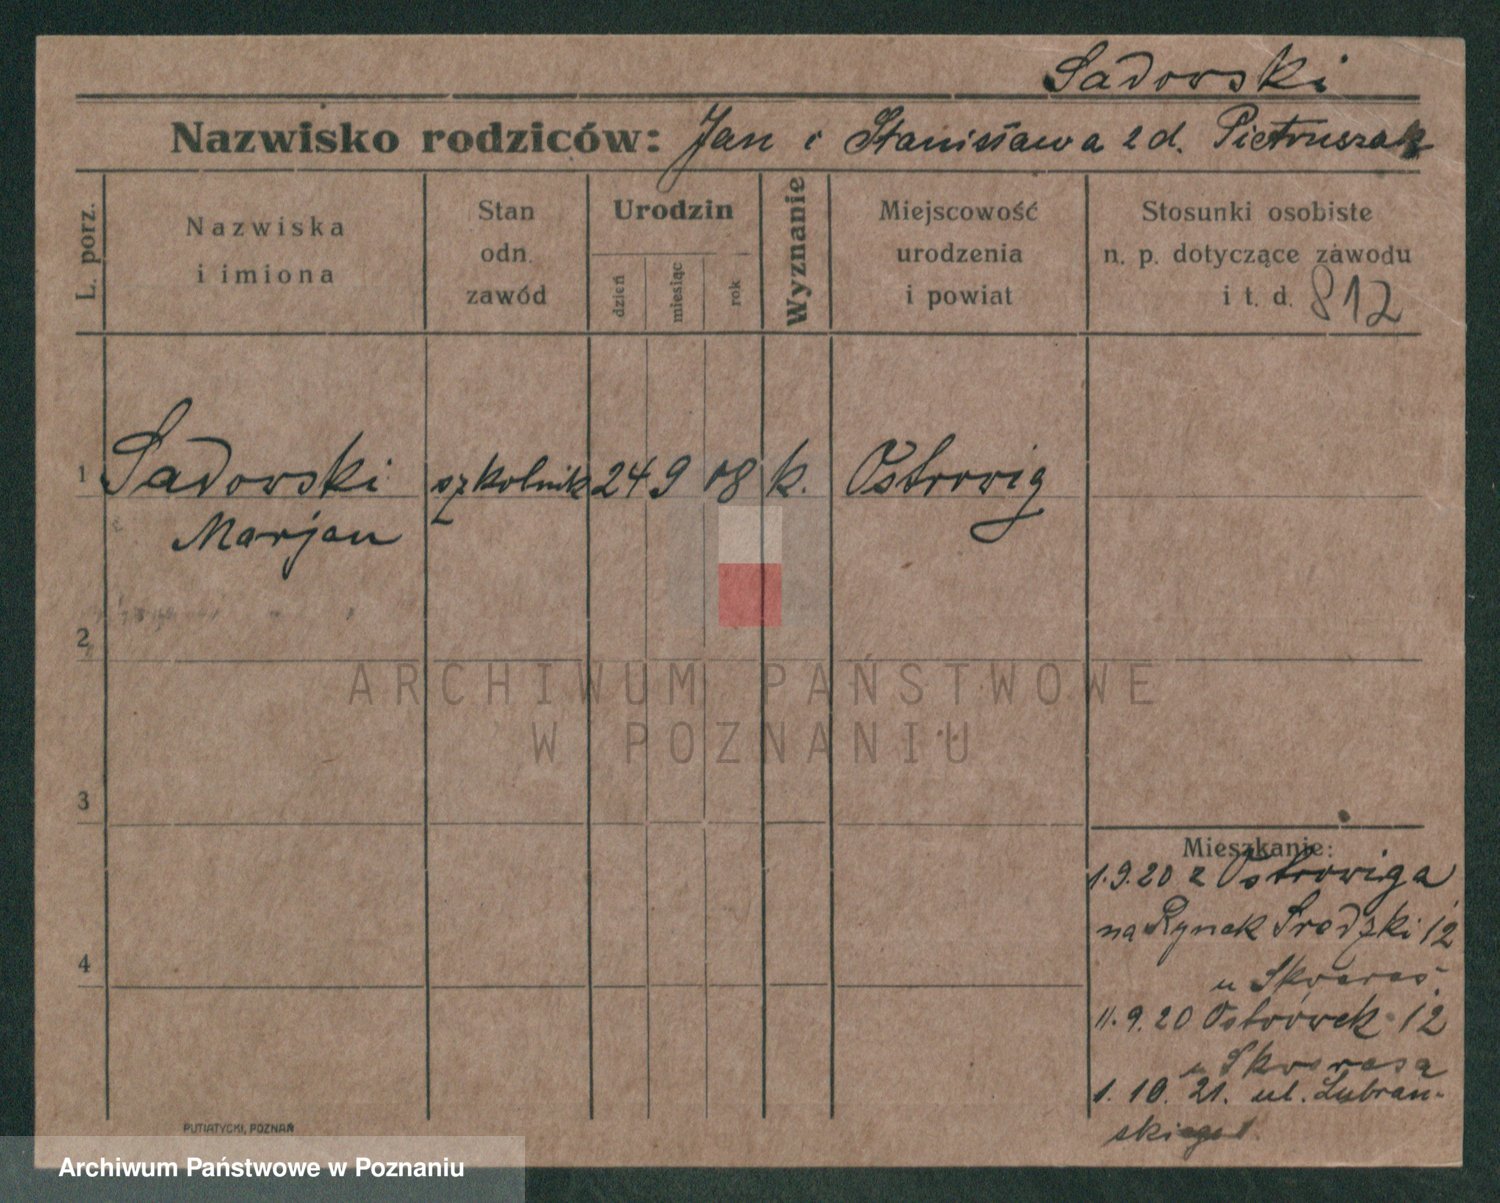 Sadowski
Nazwisko rodziców: Jan i Stanisława z d. Pietruszak
L. porz.
Nazwiska
i imiona
Stan
odn.
zawód
Urodzin
dzień
miesiąc
rok
Wyznanie
Miejscowość
urodzenia
i powiat
Stosunki osobiste
n. p. dotyczące zawodu
i t. d. 812
1 Sadowski szkolnik 24 9 08 k. Ostrowig
Marjan
2
ARCHIWUM PAŃSTWOWE
W POZNANIU
3
Mieszkanie:
1.9.20 z Ostrowiga
na Rynek Śródzki 12
u
4
11.9.20 Ostrówek 12
u
1. 10. 21. ul. Lubrań-
skiego
PUTIATYCKI, POZNAŃ
Archiwum Państwowe w Poznaniu